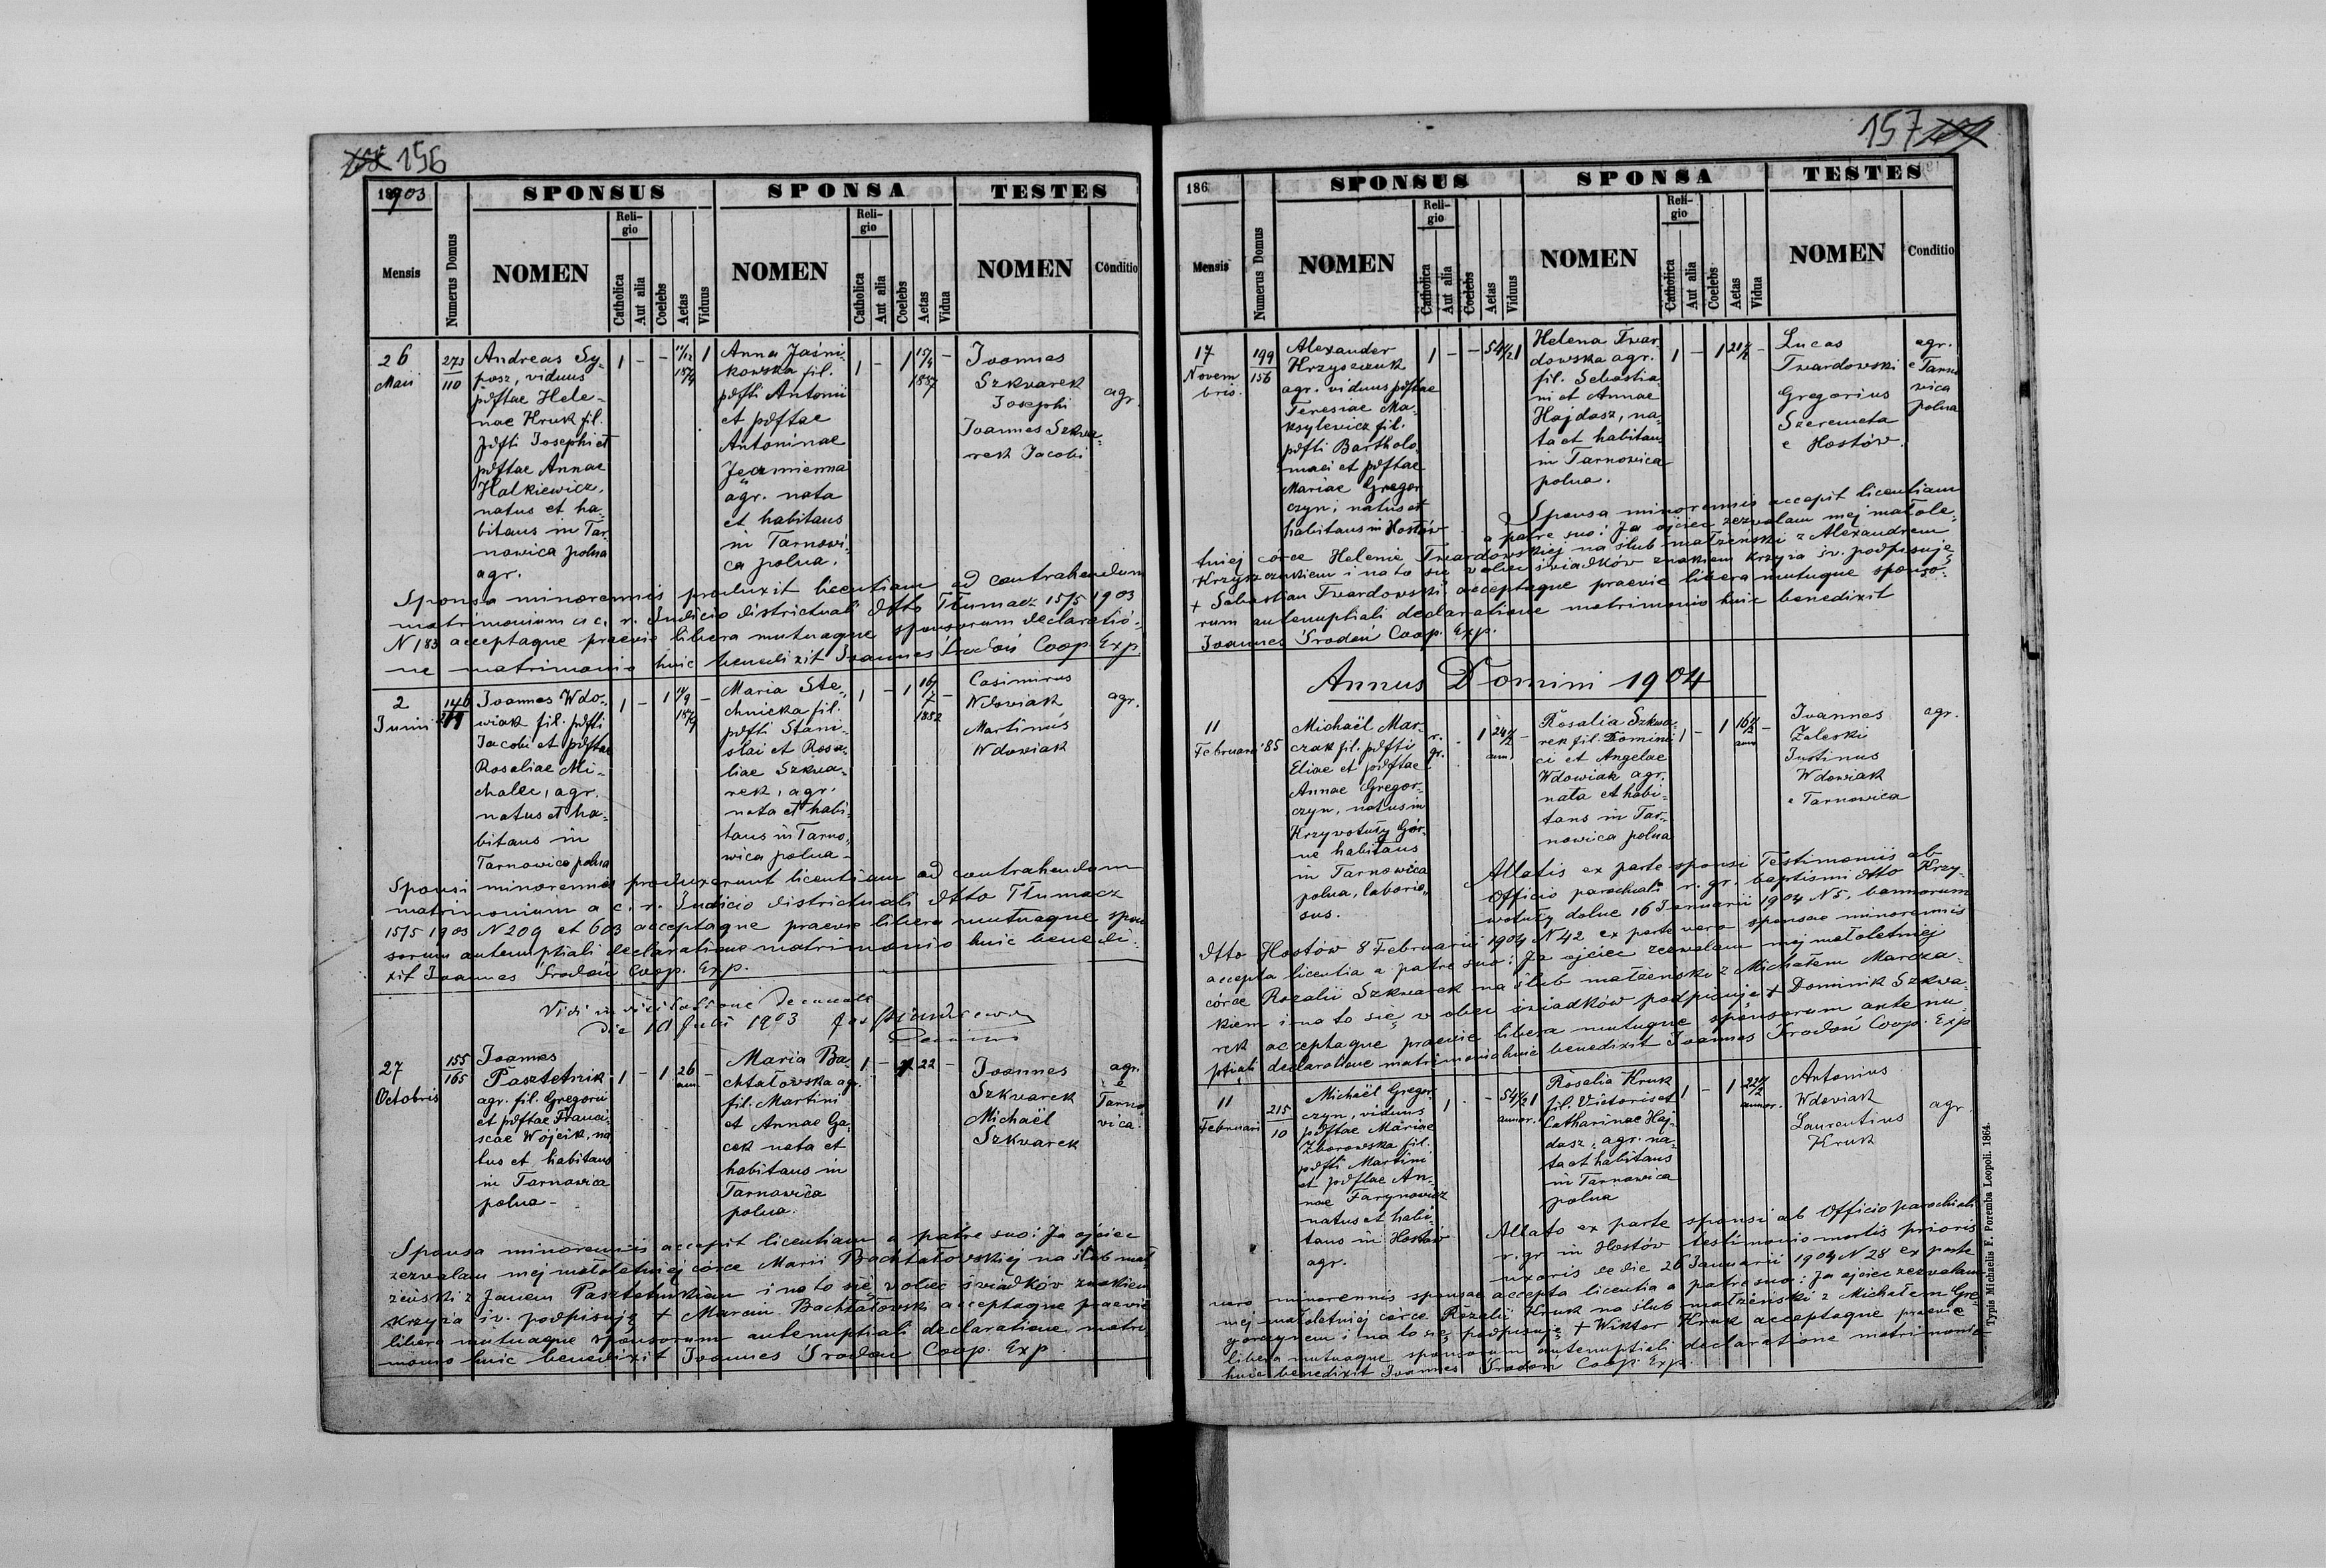 156
1903
SPONSUS
SPONSA
TESTES
Mensis
Numerus Domus
NOMEN
Religio
Catholica
Aut alia
Coelebs
Aetas
Viduus
NOMEN
Religio
Catholica
Aut alia
Coelebs
Aetas
Vidua
NOMEN
Conditio
26
Maii
273
110
Andreas Sy-
posz, viduus
pdftae Hele-
nae Kruk fil.
pdfti Josephi et
pdftae Annae
Halkiewicz,
natus et ha-
bitans in Tar-
nowica polna
agr.
1 - - 11/12 1
1874
Anna Jaśni-
kowska fil.
pdfti Antonii
et pdftae
Antoninae
Jeczmienna
agr. nata
et habitans
in Tarnowi-
ca polna.
1 - 1 15/4 -
1887
Joannes
Szkwarek
Josephi
Joannes Szkwa-
rek Jacobi
agr.
Sponsa minorennis produxit licentiam ad contrahendum
matrimonium a c. r. Judicio districtuali dtto Tłumacz 15/5 1903
N 183 acceptaque praevie libera mutuaque sponsorum declaratio-
ne matrimonio huic benedixit Joannes Srodoń Coop. Exp.
2
Junii
146
211
Joannes Wdo-
wiak fil. pdfti
Jacobi et pdftae
Rosaliae Mi-
chalec, agr.
natus et ha-
bitans in
Tarnowica polna
1 - 1 11/9 -
1879
Maria Ste-
chnicka fil.
pdfti Stani-
slai et Rosa-
liae Szkwa-
rek, agr.
nata et habi-
tans in Tarno-
wica polna -
1 - 1 16/7 -
1882
Casimirus
Wdowiak
Martinus
Wdowiak
agr.
Sponsi minorennes produxerunt licentiam ad contrahendum
matrimonium a c. r. Judicio districtuali dtto Tłumacz
15/5 1903 N 209 et 603 acceptaque praevie libera mutuaque spon
sorum antenuptiali declaratione matrimonio huic benedi-
xit Joannes Srodoń Coop. Exp.
Vidi in visitatione decanali
die 10 Julii 1903
27
Octobris
155
165
Joannes
Pasztetnik
agr. fil. Gregorii
et pdftae Franci-
scae Wójcik, na
tus et habitans
in Tarnowica
polna -
1 - 1 26 -
ann.
Maria Ba-
chtałowska agr.
fil. Martini
et Annae Ga-
cek nata et
habitans in
Tarnowica
polna.
1 - 1 22 -
Joannes
Szkwarek
Michaël
Szkwarek
agr.
e
Tarno
vica.
Sponsa minorennis accepit licentiam a patre suo: Ja ojciec
zezwalam mej małoletniej córce Marii Bachtałowskiej na ślub mał
żeński z Janem Pasztetnikiem i na to się wobec świadków znakiem
krzyża św. podpisuję + Marcin Bachtałowski acceptaque praevie
libera mutuaque sponsorum antenuptiali declaratione matri
monio huic benedixit Joannes Srodoń Coop. Exp.
157
186
SPONSUS
SPONSA
TESTES
Mensis
Numerus Domus
NOMEN
Religio
Catholica
Aut alia
Coelebs
Aetas
Viduus
NOMEN
Religio
Catholica
Aut alia
Coelebs
Aetas
Vidua
NOMEN
Conditio
17
Novem
bris.
199
156
Alexander
Krzyszczuk
agr. viduus pdftae
Teresiae Ma-
ksylewicz fil.
pdfti Bartholo-
maei et pdftae
Mariae Gregor
czyn, natus et
habitans in Hostów
1 - - 54 1/2 1
Helena Twar-
dowska agr.
fil. Sebastia
ni et Annae
Hajdasz, na-
ta et habitans
in Tarnowica
polna.
1 - 1 21 1/2 -
Lucas
Twardowski
Gregorius
Szeremeta
e Hostów.
agr.
e Tarno
vica
polna
Sponsa minorennis accepit licentiam
a patre suo: Ja ojciec zezwalam mej małole-
tniej córce Helenie Twardowskiej na ślub małżeński z Alexandrem
Krzyszczukiem i na to się wobec świadków znakiem krzyża św. podpisuję
+ Sebastian Twardowski acceptaque praevie libera mutuaque sponso-
rum antenuptiali declaratione matrimonio huic benedixit
Joannes Srodoń Coop. Exp.
Annus Domini 1904
11
Februarii
85
Michaël Mar-
czak fil. pdfti
Eliae et pdftae
Annae Gregor-
czyn, natus in
Krzywotuły Gór-
ne habitans
in Tarnowica
polna, laborio-
sus.
r.
gr.
- 1 24 1/2 -
ann.
Rosalia Szkwa-
rek fil. Domini
ci et Angelae
Wdowiak agr.
nata et habi-
tans in Tar-
nowica polna
1 - 1 16 1/2 -
ann.
Joannes
Zaleski
Justinus
Wdowiak
e Tarnowica
agr.
Allatis ex parte sponsi Testimoniis ab
Officio parochiali r. gr. baptismi dtto Krzy-
wotuły dolne 16 Januarii 1904 N 5, bannorum
dtto Hostów 8 Februarii 1904 N 42 ex parte vero sponsae minorennis
accepta licentia a patre suo: Ja ojciec zezwalam mej małoletniej
córce Rozalii Szkwarek na ślub małżeński z Michałem Marcza-
kiem i na to się w obec świadków podpisuję + Dominik Szkwa-
rek acceptaque praevie libera mutuaque sponsorum antenu-
ptiali declaratione matrimonio huic benedixit Joannes Srodoń Coop. Exp
11
Februarii
215
10
Michaël Gregor-
czyn, viduus
pdftae Mariae
Zborowska fil.
pdfti Martini
et pdftae An-
nae Farynowicz
natus et habi-
tans in Hostów
agr.
1 - - 54 1/2 1
annor.
Rosalia Kruk
fil. Victoris et
Catharinae Haj-
dasz, agr. na-
ta et habitans
in Tarnowica
polna
1 - 1 22 1/2
annor.
Antonius
Wdowiak
Laurentius
Kruk
agr.
Allato ex parte sponsi ab Officio parochiali
r. gr. in Hostów testimonio mortis prioris
uxoris de die 26 Januarii 1904 N 28 ex parte
vero minorennis sponsae accepta licentia a patre suo: Ja ojciec zezwalam
mej małoletniej córce Rozalii Kruk na ślub małżeński z Michałem Gre-
gorczynem i na to się podpisuję + Wiktor Kruk acceptaque praevie
libera mutuaque sponsorum antenuptiali declaratione matrimonio
huic benedixit Joannes Srodoń Coop. Exp.
Typis Michaelis F. Poremba Leopoli. 1864.